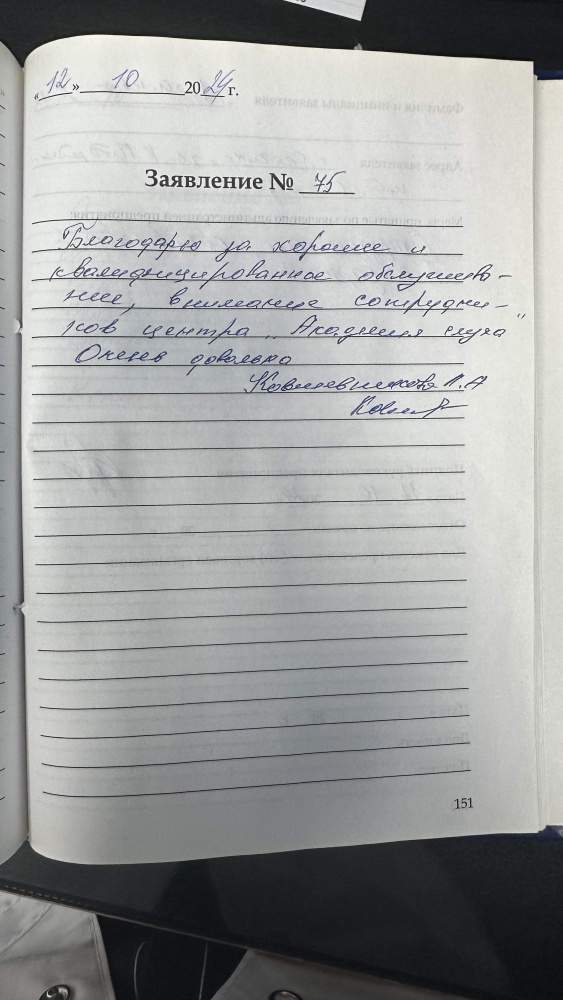 «12» 10 2024 г.
Заявление № 75
Благодарю за хорошее и
квалифицированное обслужива-
ние, внимание сотрудни-
ков центра „Академия слуха"
Очень довольна
Л.А
151